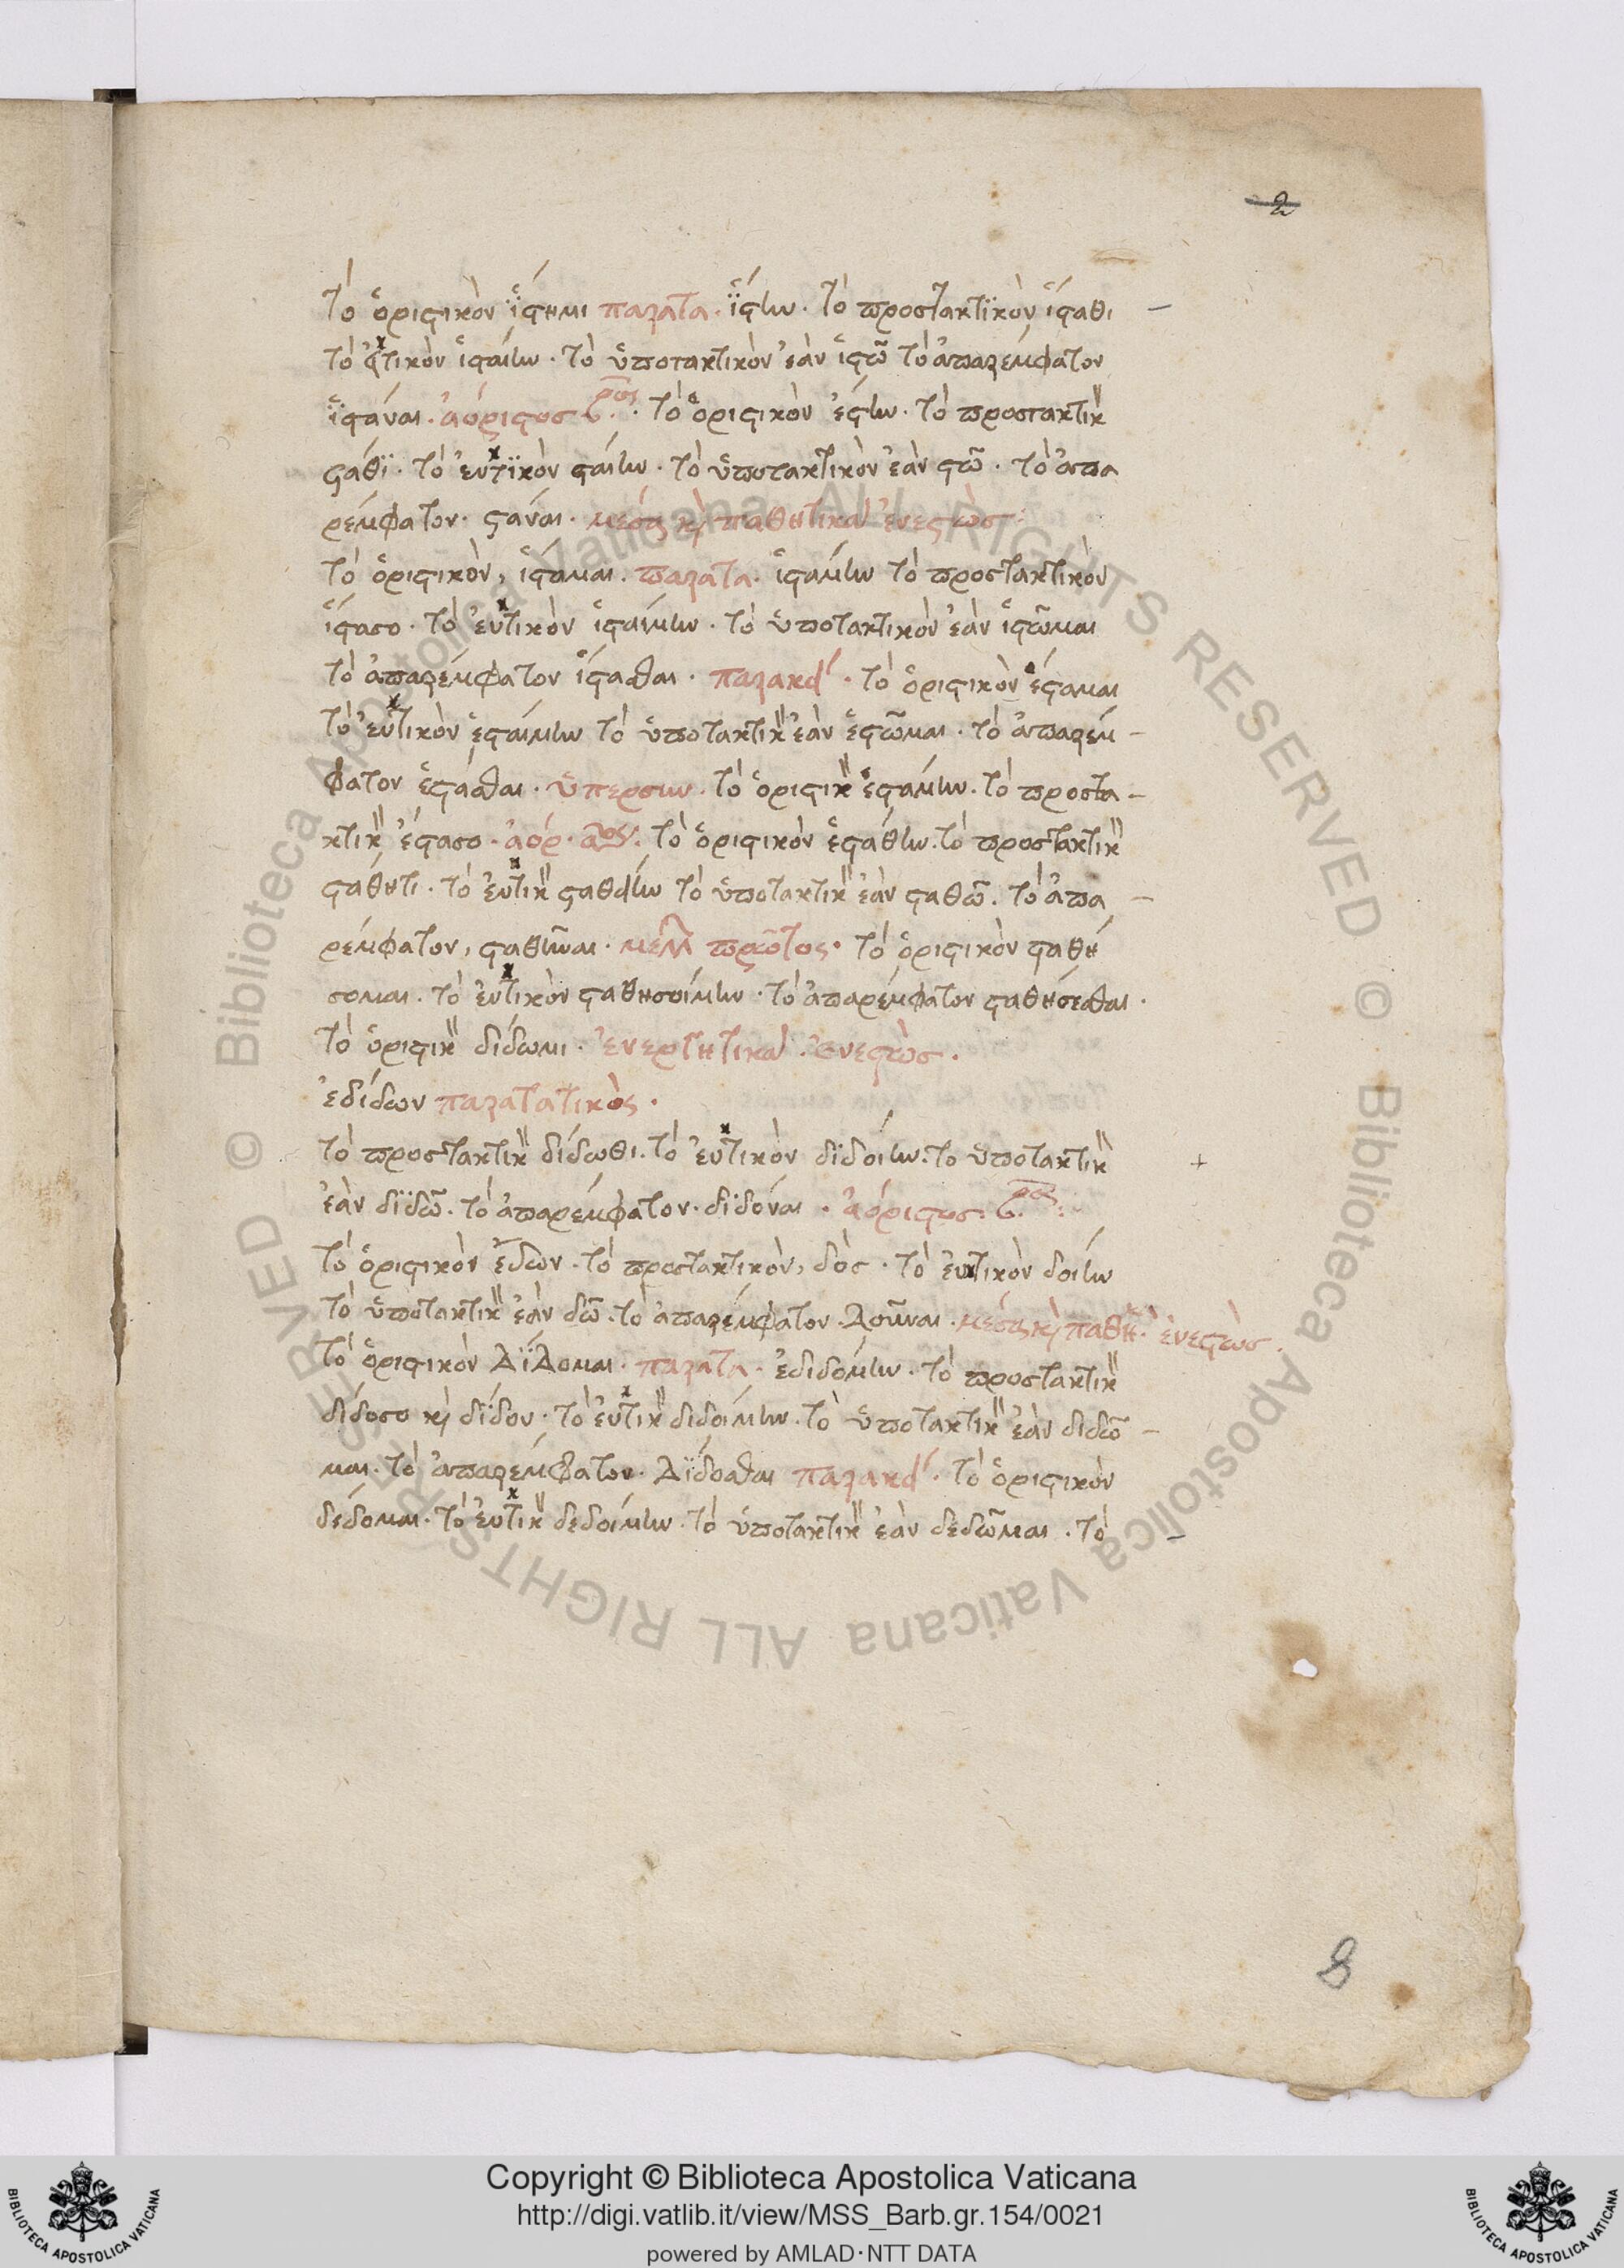 2
τὸ ὁριστικὸν ἵστημι παρατα. ἵστην. τὸ προστακτικὸν ἵσταθι –
τὸ εὐτικὸν ἱσταίην. τὸ ὑποτακτικὸν ἐὰν ἱστῶ τὸ ἀπαρέμφατον
ἱστάναι. ἀόριστος β^ρος. τὸ ὁριστικὸν ἔστην. τὸ προστακτικ
στάθι. τὸ εὐτικὸν σταίην. τὸ ὑποτακτικὸν ἐὰν στῶ. τὸ ἀπα
ρέμφατον. στάναι. μέσα καὶ παθητικὰ ἐνεστὼς.
τὸ ὁριστικὸν, ἵσταμαι. παρατα. ἱστάμην τὸ προστακτικὸν
ἵστασο. τὸ εὐτικὸν ἱσταίμην. τὸ ὑποτακτικὸν ἐὰν ἱστῶμαι
τὸ ἀπαρέμφατον ἵστασθαι. παρακεί. τὸ ὁριστικὸν ἕσταμαι
τὸ εὐτικὸν ἑσταίμην τὸ ὑποτακτικ ἐὰν ἑστῶμαι. τὸ ἀπαρέμ –
φατον ἑστάσθαι. ὑπερσυν. τὸ ὁριστικ ἑστάμην. τὸ προστα –
κτικ ἕστασο. ἀόρ. α^ος. τὸ ὁριστικὸν ἐστάθην. τὸ προστακτικ
στάθητι. τὸ εὐτικ σταθείην τὸ ὑποτακτικ ἐὰν σταθῶ. τὸ ἀπα –
ρέμφατον, σταθῆναι. μέλλ πρῶτος. τὸ ὁριστικὸν σταθή
σομαι. τὸ εὐτικὸν σταθησοίμην. τὸ ἀπαρέμφατον σταθήσεσθαι.
τὸ ὁριστικ δίδωμι. ἐνεργητικὰ. ἐνεστὼς.
ἐδίδων παρατατικὸς.
τὸ προστακτικ δίδωθι. τὸ εὐτικὸν διδοίην. το ὑποτακτικ +
ἐὰν διδῶ. τὸ ἀπαρέμφατον. διδόναι. ἀόριστος. β^ρος:
τὸ ὁριστικὸν ἔδων. τὸ προστακτικὸν, δὸς. τὸ εὐκτικὸν δοίην
τὸ ὑποτακτικ ἐὰν δῶ. τὸ ἀπαρέμφατον. δοῦναι. μέσα καὶ παθη. ἐνεστὼς.
τὸ ὁριστικὸν δίδομαι. παρατα. ἐδιδόμην. τὸ προστακτικ
δίδοσο καὶ δίδου. τὸ εὐτικ διδοίμην. τὸ ὑποτακτικ ἐὰν διδῶ –
μαι. τὸ ἀπαρέμφατον. δίδοσθαι παρακεί. τὸ ὁριστικὸν
δέδομαι. τὸ εὐτικ δεδοίμην. τὸ ὑποτακτικ ἐὰν δεδῶμαι. τὸ –
8
© Biblioteca Apostolica Vaticana ALL RIGHTS RESERVED © Biblioteca Apostolica Vaticana ALL RIGHTS RESERVED
Copyright © Biblioteca Apostolica Vaticana
http://digi.vatlib.it/view/MSS_Barb.gr.154/0021
powered by AMLAD·NTT DATA
BIBLIOTECA APOSTOLICA VATICANA
BIBLIOTECA APOSTOLICA VATICANA